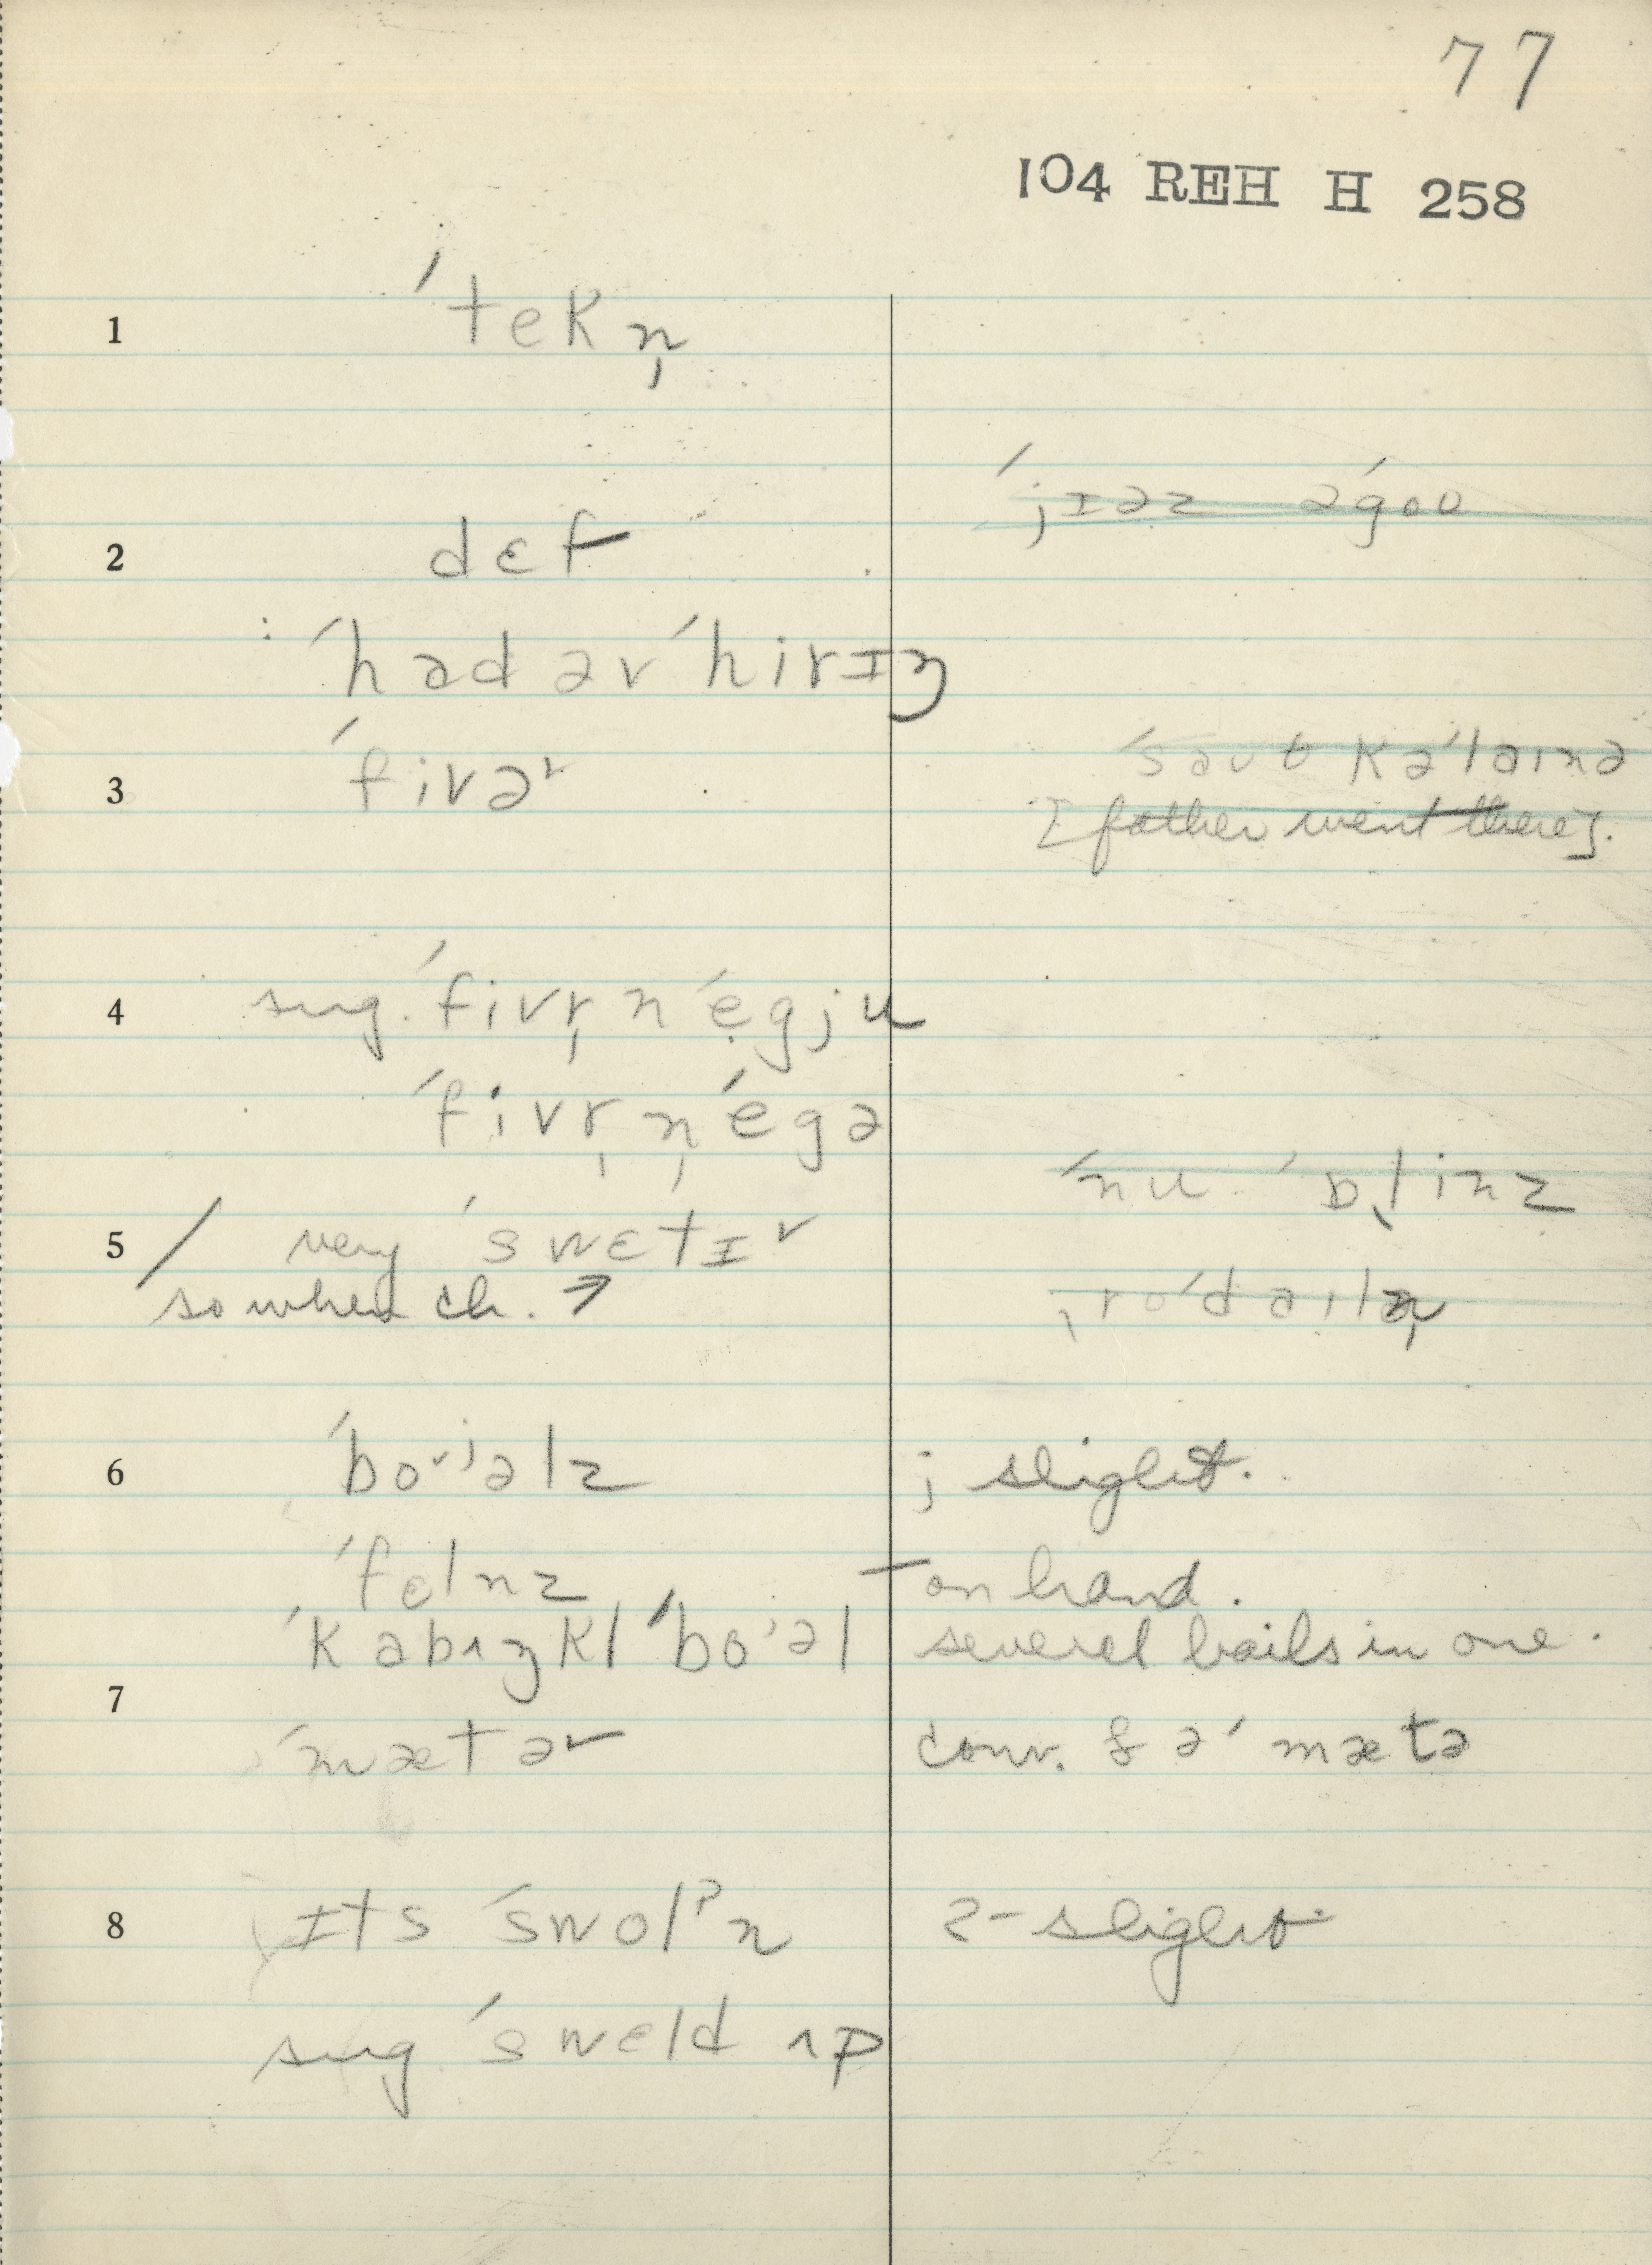 77
104 REH H 258
1 ˈtekn̩
ˈjɪəz əˈgoʊ
2 dɛf
: ˈhad əv ˈhirɪŋ
ˈsaʊt kəˈlaɪnə
3 ˈfivəʳ
[father went there].
4 sug. ˈfivr̩ n ˈẹgju
ˈfivr̩ n̩ ˈegə
ˈnu ˈɒl̩inz
5 / very ˈswɛtɪʳ
so when ch. →
6 ˈboʳʲəlz j slight.
ˈfɛlnz – on hand.
ˈkabʌŋkl ˈboʲəl several boils in one.
7 ˈmætəʳ conv. & əˈ mætə
8 ɪts ˈswolˀn 2 - slight
sug ˈsweld ʌp